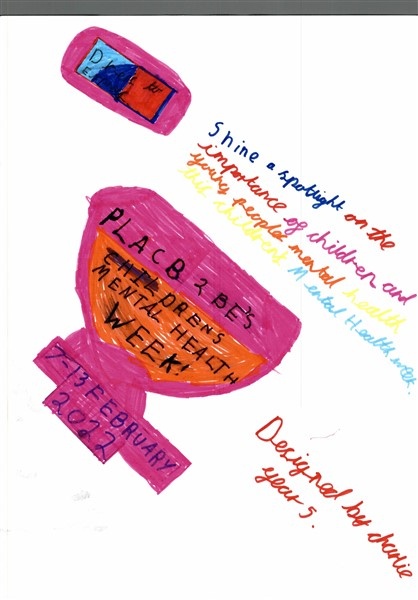 Shine a spotlight on the
importance of children and
young peoples mental health
this childrens Mental Health week.
PLACB 2 BE'S
CHILDREN'S
MENTAL HEALTH
WEEK!
7-13 FEBRUARY
2022
Designed by charlie
year 5.